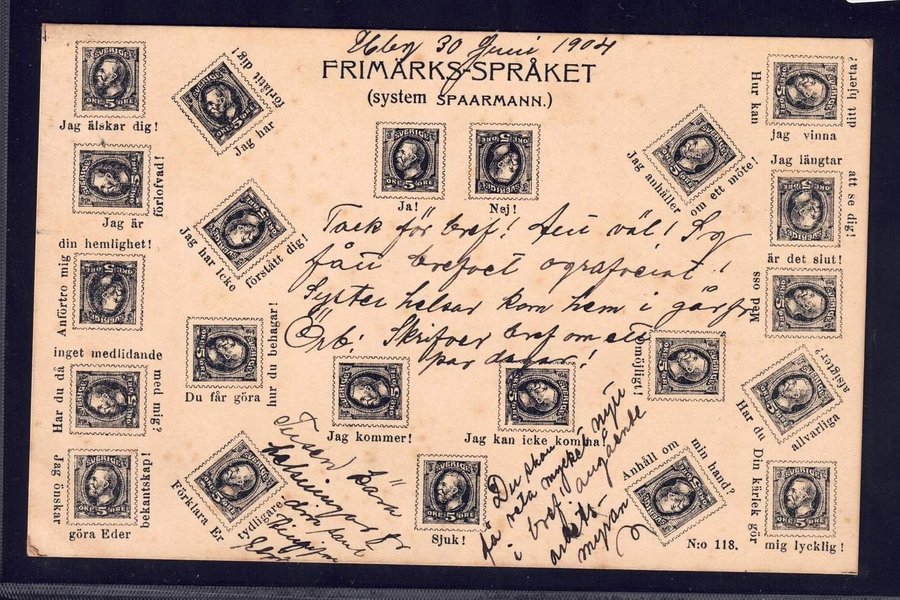 30 Juni 1904
FRIMÄRKS-SPRÅKET
(system SPAARMANN.)
SVERIGE
5
ÖRE 5 ÖRE
Jag älskar dig!
Jag har
förlåtit dig!
Jag är
förlofvad!
Jag har icke
förstått dig!
Anförtro mig
din hemlighet!
Har du då
inget medlidande
med mig?
Du får göra
hur du behagar!
Jag önskar
göra Eder
bekantskap!
Förklara Er
tydligare!
Ja!
Nej!
Tack för bref! Ännu väl! Sg
få brefvet
Syster helsar kom hem i går fr
Öbb! Skrifver bref om ett
par dagar!
Jag kommer!
Jag kan icke komma!
Sjuk!
omöjligt!
Jag anhåller
om ett möte!
Hur kan
jag vinna
ditt hjerta?
Jag längtar
att se dig!
Med oss
är det slut!
Har du
allvarliga
afsigter?
Anhåll om
min hand?
Din kärlek gör
mig lycklig!
Tusen kära
helsningar fr
din
Du skall
få veta mycket nytt
i bref angående
arbets
myran
N:o 118.